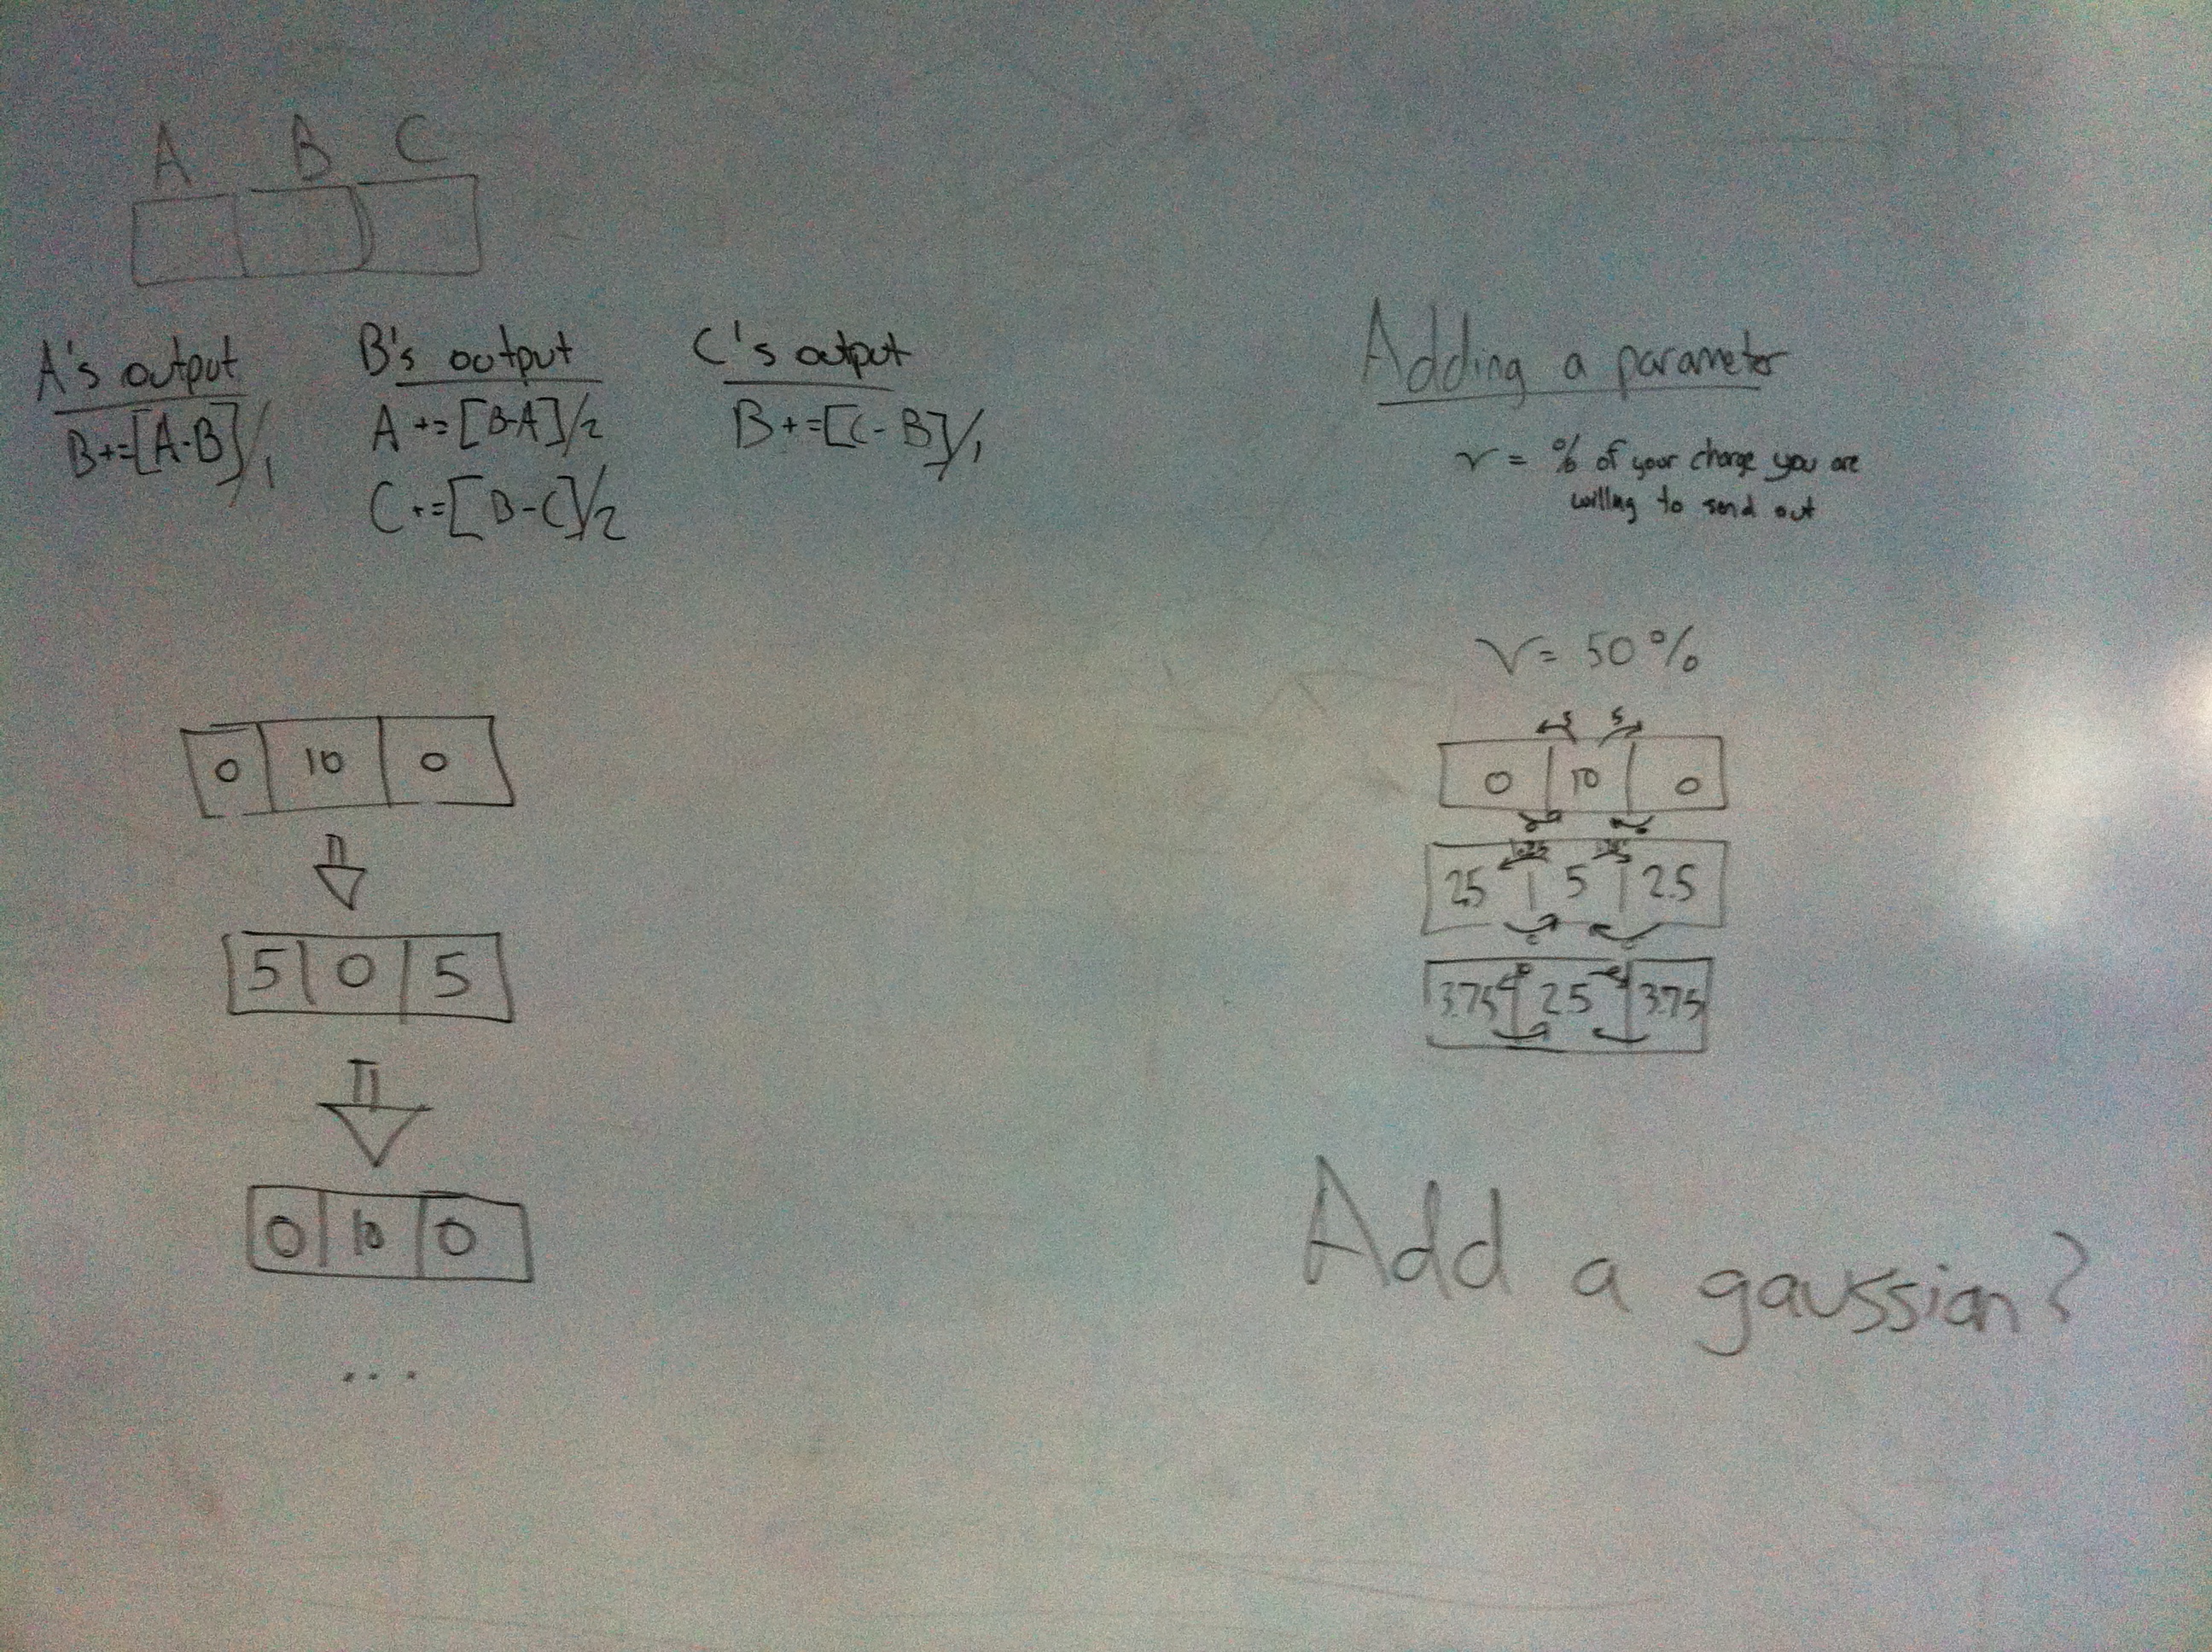 A B C
A's output
B+=[A-B]/1
B's output
A+=[B-A]/2
C+=[B-C]/2
C's output
B+=[C-B]/1
0 10 0
5 0 5
0 10 0
...
Adding a parameter
r = % of your charge you are
willing to send out
r = 50%
5 5
0 10 0
2.5 5 2.5
3.75 2.5 3.75
Add a gaussian?